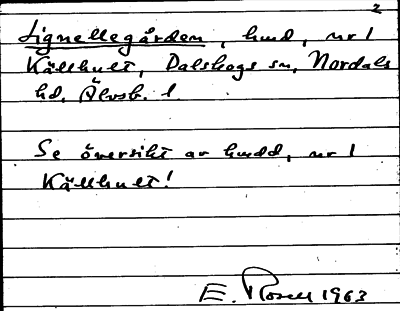 2
Lignellegården, hmd, nr 1
Källhult, Dalskogs sn, Nordals
hd, Älvsb. l.
Se översikt av hmdd, nr 1
Källhult!
E. Rosell 1963